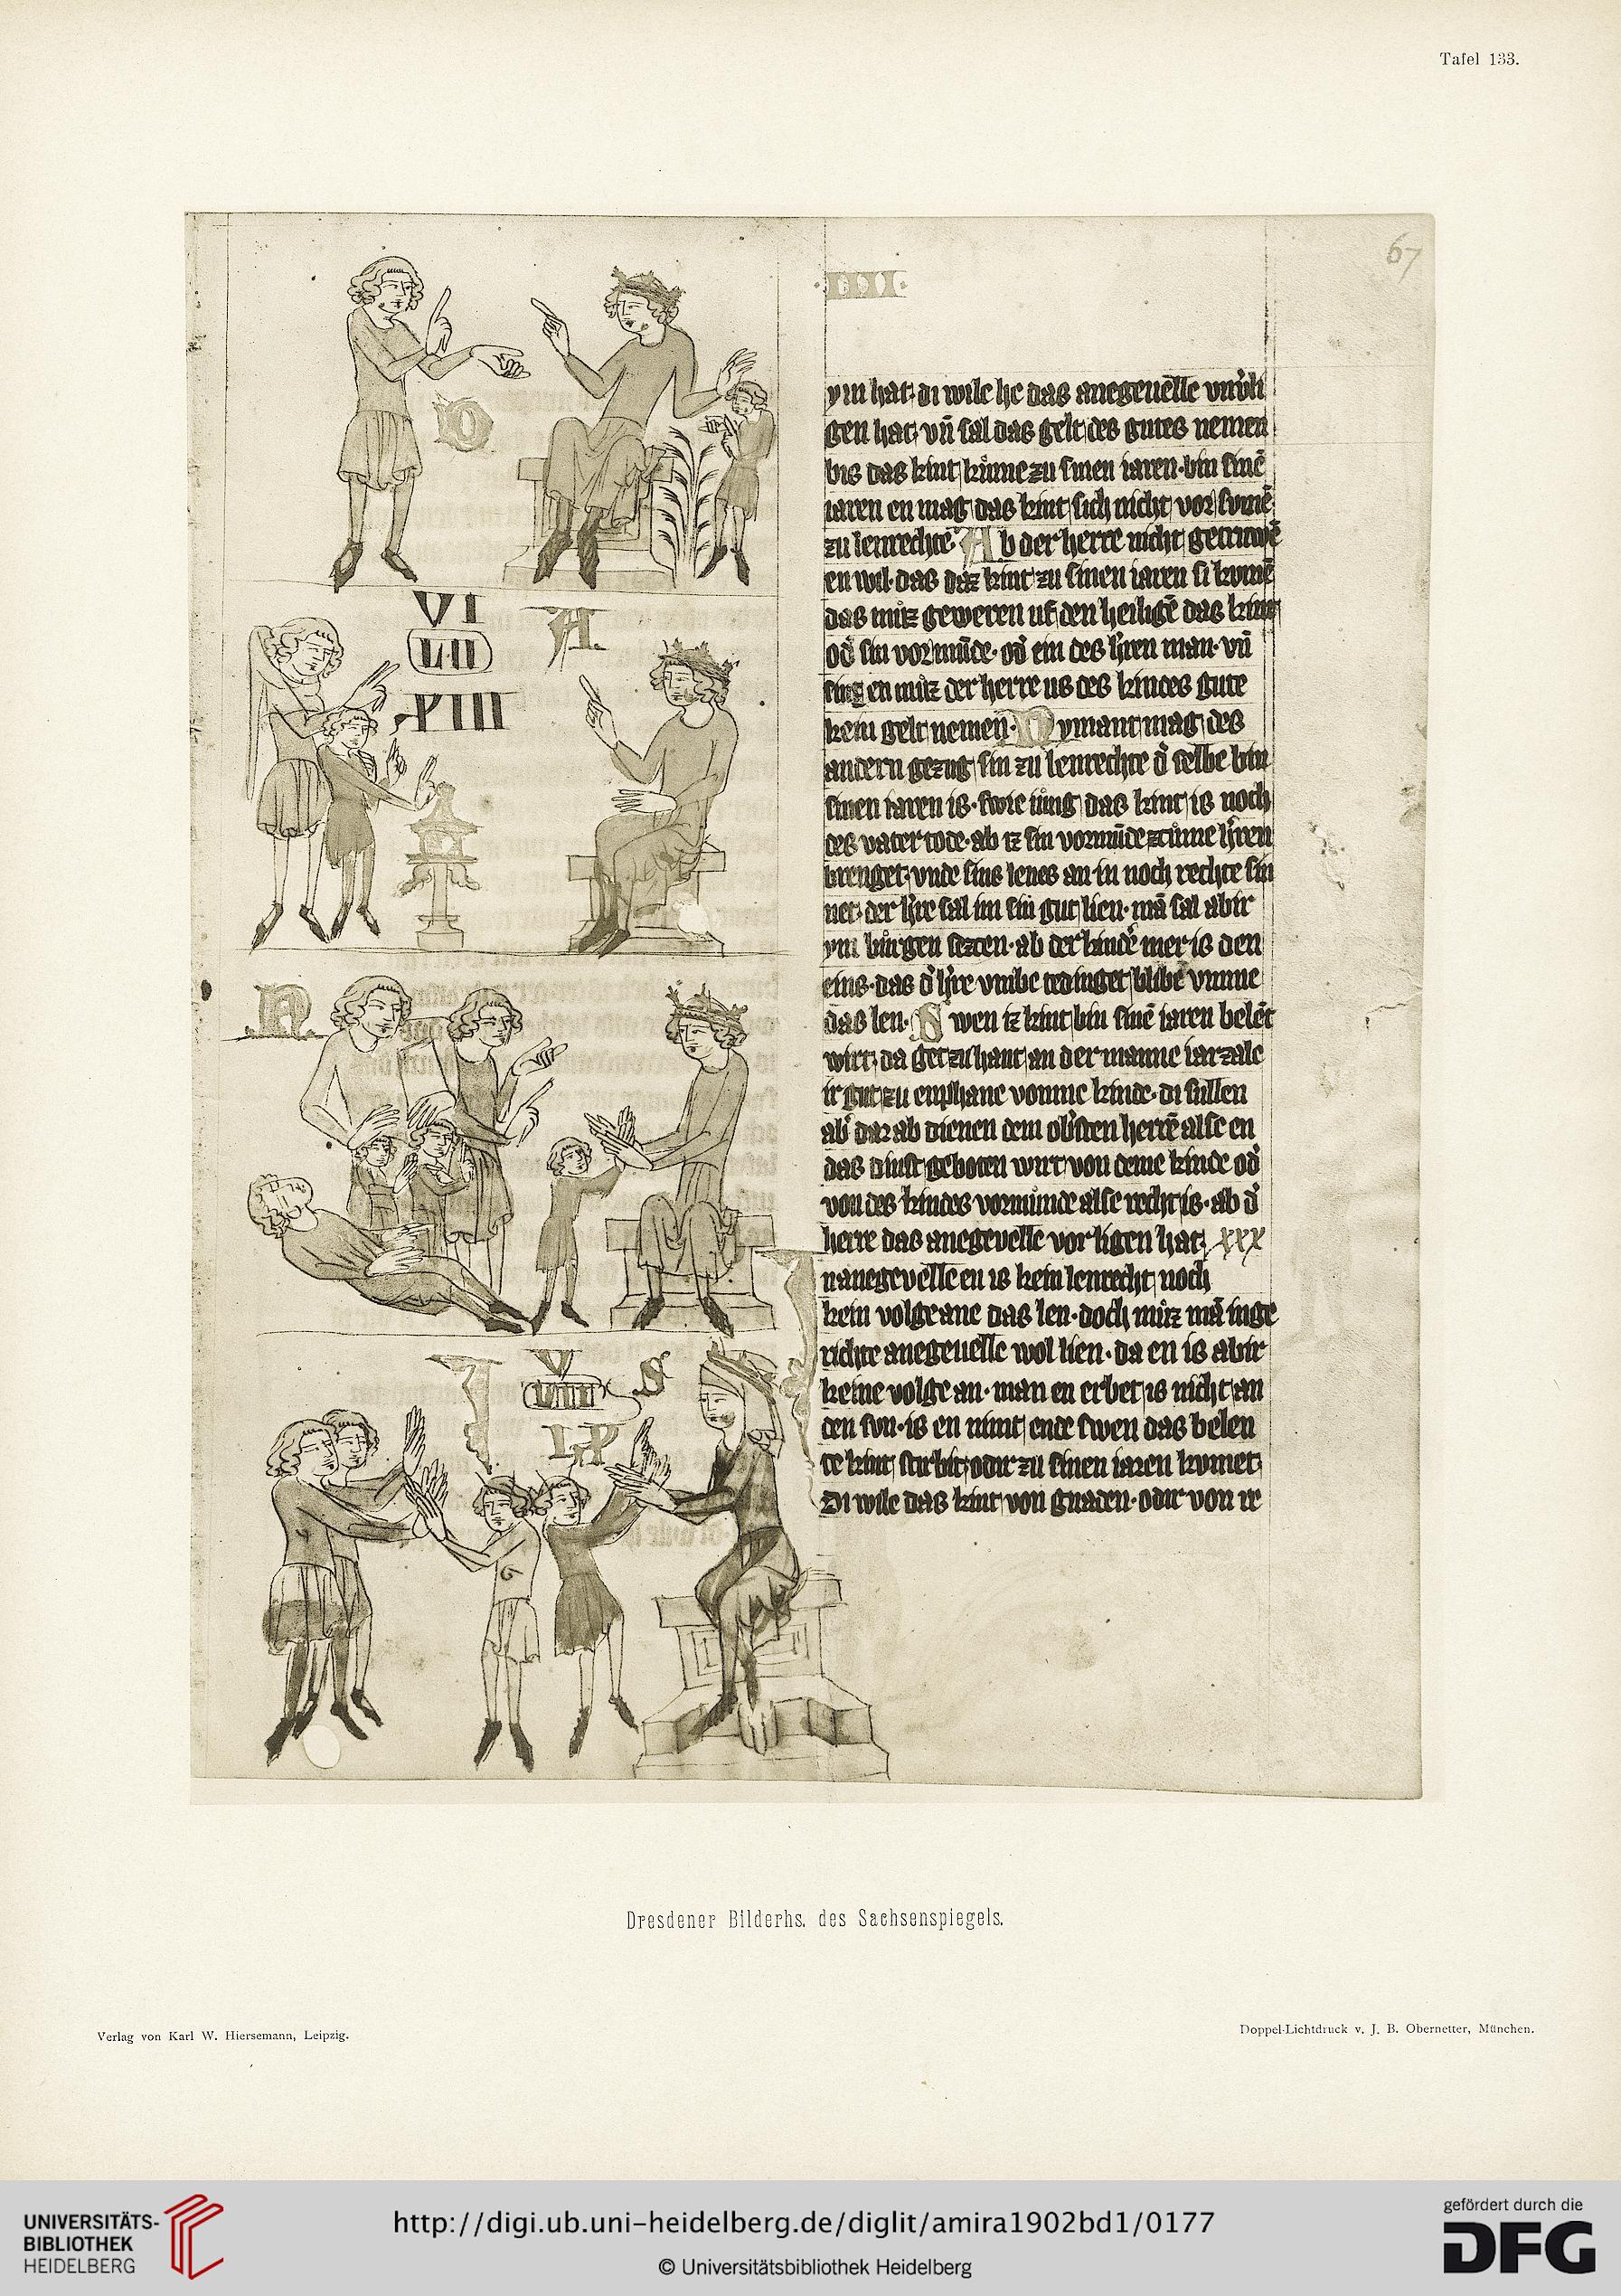 Tafel 133.
67
·IIII·
ym hat· di wile he das anegeuelle vnvͦli
gen hat· vn̄ sal das gelt des gutes nemen
bis das kint kůme zu sinen iaren· bin sinē
iaren en mag das kint sich nicht vor svmē
zu lenrechte· Ab der herre nicht getruwē
en wil· das daz kint zu sinen iaren si komē
das můz geweren uf den heiligē das kint
od' sin vormūde· od' ein des h'ren man· vn̄
sint en můz der herre us des kindes gute
kein gelt nemen· Nymant mag des
andern gezug sin zu lenrechte d' selbe bin
sinen iaren is· swie iůng das kint is noch
des vater tode· ab iz sin vormūde zcůme h'ren
brenget· vnde sins lenes an in noch rechte sin
net· der h're sal im sin gut lien· mā sal abir
ym bůrgen sezcen· ab der kind' mer is den
eins· das d' h're vmbe tedinget blibē vmme
das len· Swen iz kint bin sinē iaren belēt
wirt· da get zu hant an der manne iarzale
ir gut zu enphane vonme kinde· di sullen
ab' dar ab dienen dem ob'sten herrē alse en
das dinst geboten wirt von deme kinde od'
von des kindes vormůnde alse recht is· ab d'
herre das anegevelle vor ligen hat· xxx
nanegevelle en is kein lenrecht noch
kein volge ane das len· doch můz mā inge
richte anegeuelle wol lien· da en is abir
keine volge an· man en erbet is nicht an
den svn· is en nimt ende swen das belen
te kint stirbit· odir zu sinen iaren kvmet·
Di wile das kint von gnaden· odir von re
O
VI
LII
A
PIII
N
I
V
VIII
S
LP
Dresdener Bilderhs. des Sachsenspiegels.
Verlag von Karl W. Hiersemann, Leipzig.
Doppel-Lichtdruck v. J. B. Obernetter, München.
UNIVERSITÄTS-
BIBLIOTHEK
HEIDELBERG
http://digi.ub.uni-heidelberg.de/diglit/amira1902bd1/0177
© Universitätsbibliothek Heidelberg
gefördert durch die
DFG